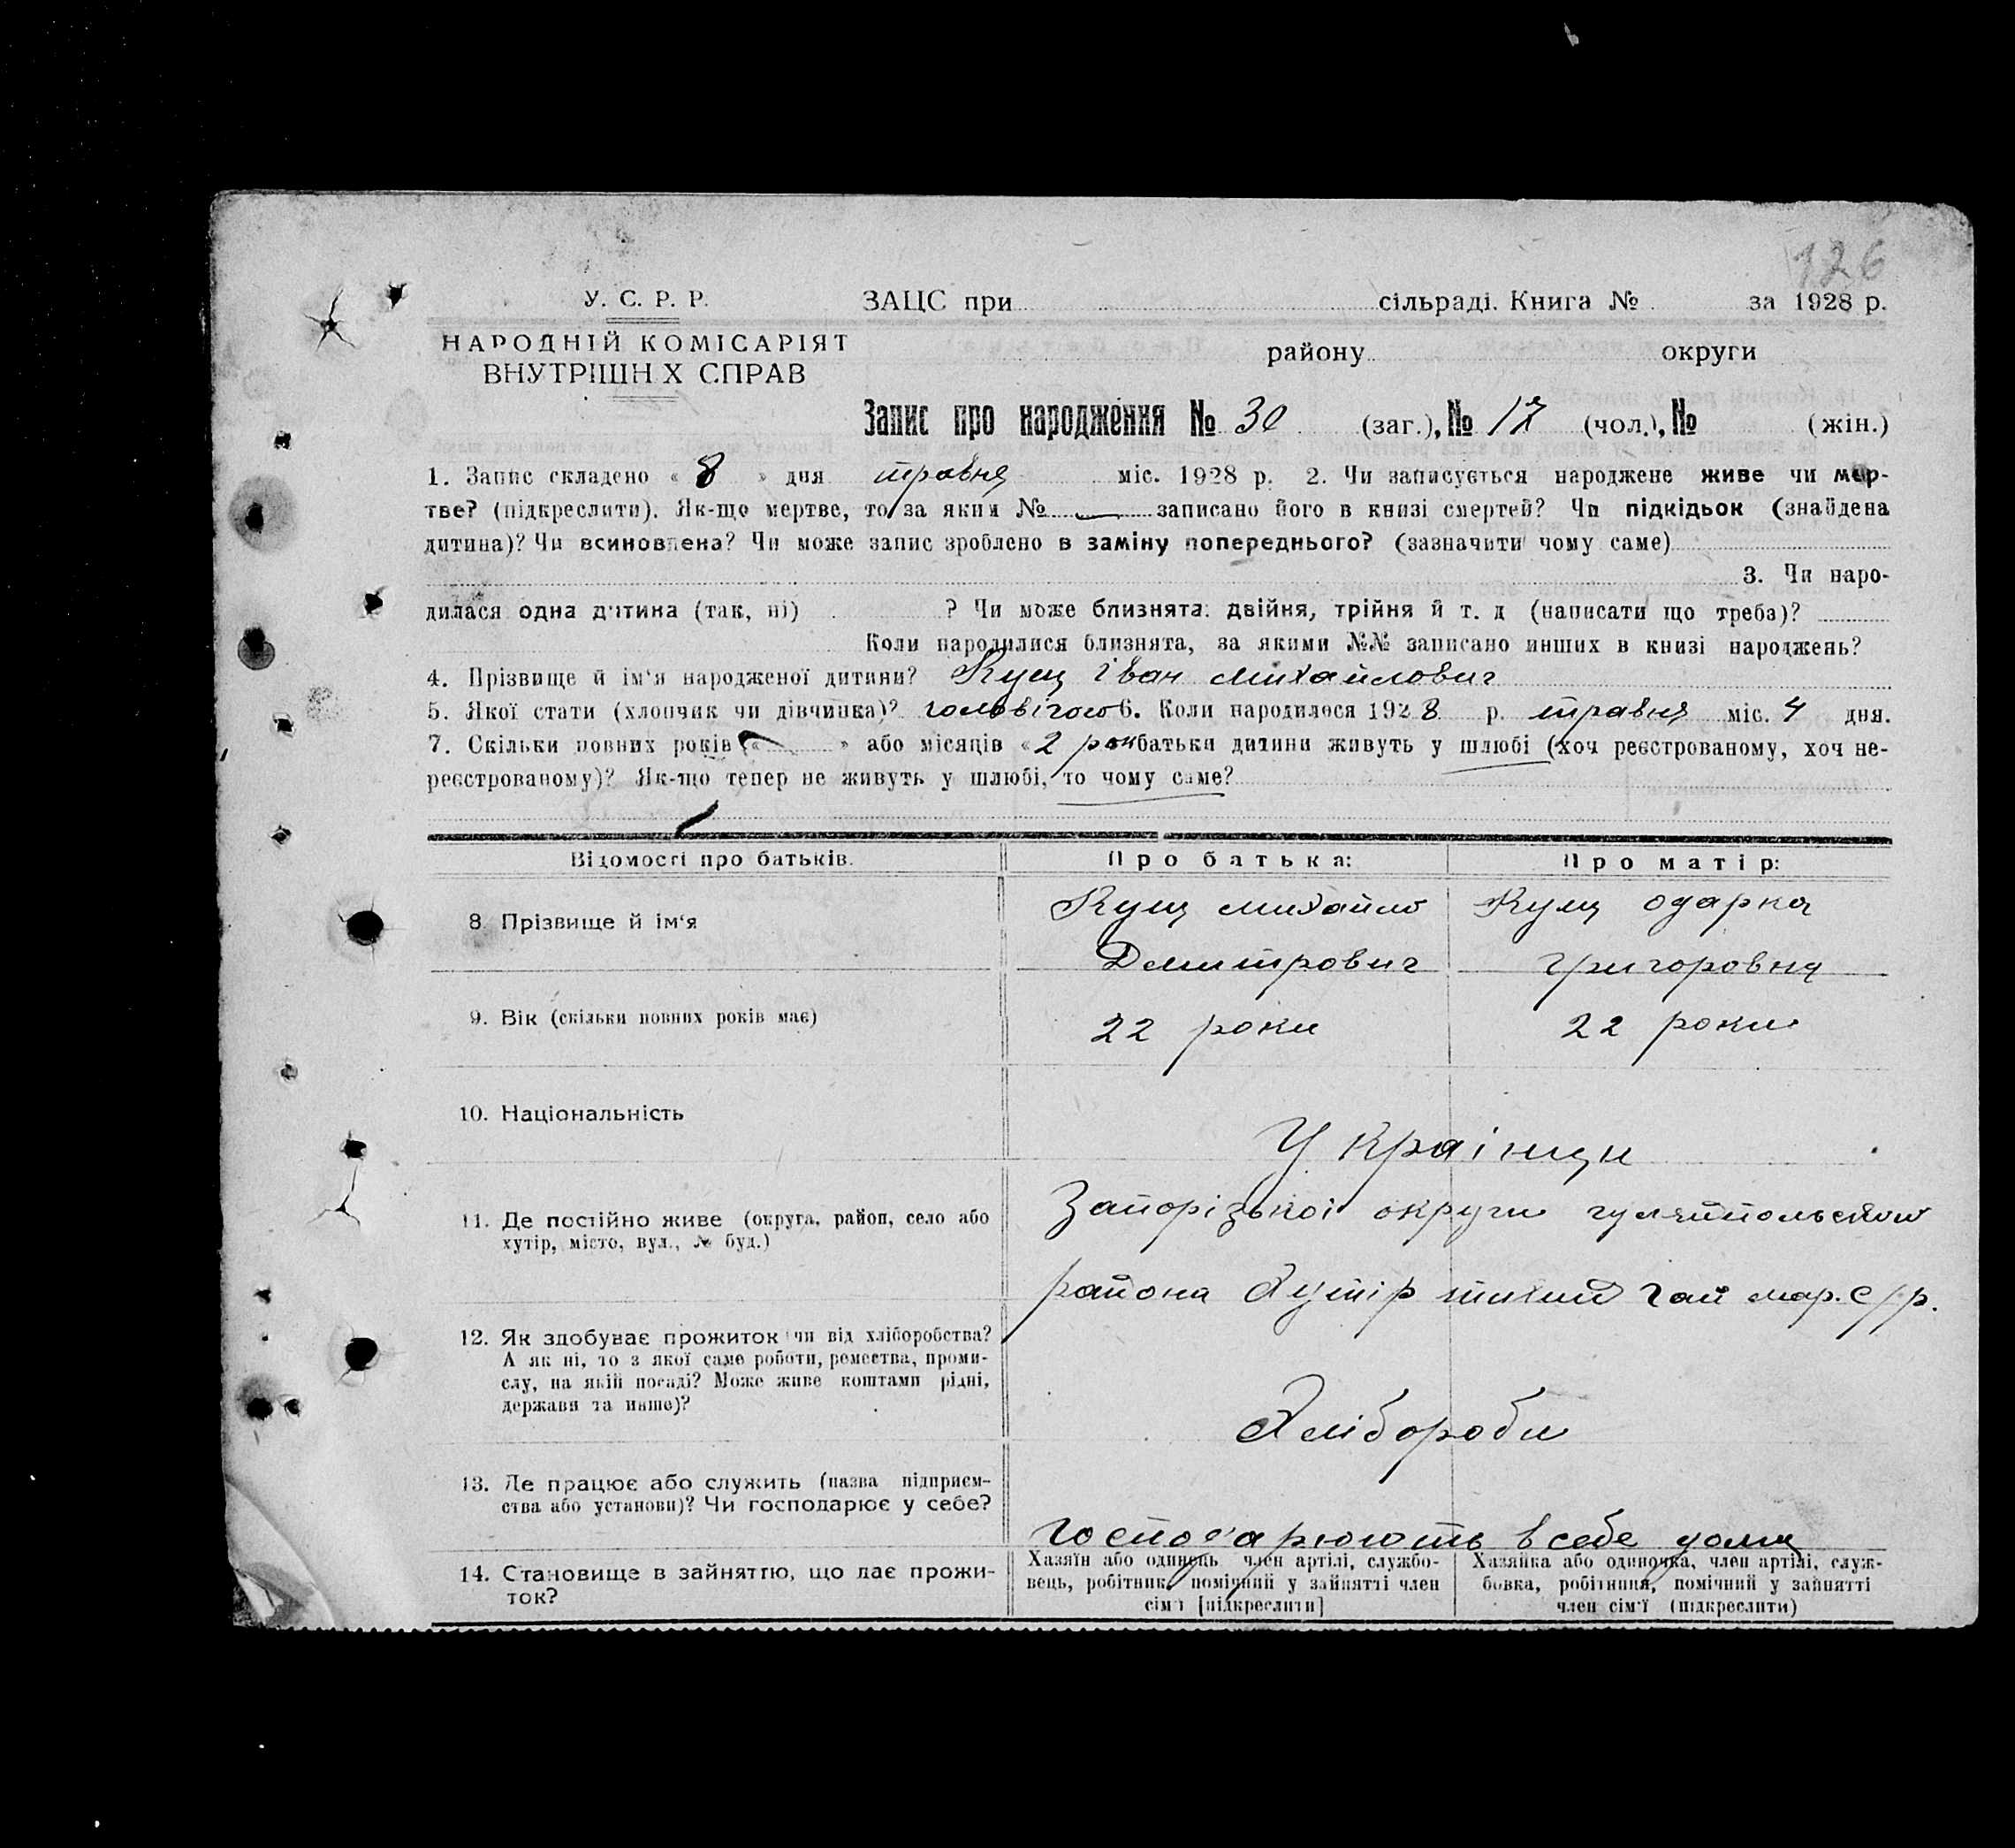 126
У. С. Р. Р.
НАРОДНІЙ КОМІСАРІЯТ
ВНУТРІШН Х СПРАВ
ЗАЦС при сільраді. Книга № за 1928 р.
району округи
Запис про народження № 30 (заг.), № 17 (чол.), № (жін.)
1. Запис складено « 8 » дня травня міс. 1928 р. 2. Чи записується народжене живе чи мер-
тве? (підкреслити). Як-що мертве, то за яким № записано його в книзі смертей? Чи підкідьок (знайдена
дитина)? Чи всиновлена? Чи може запис зроблено в заміну попереднього? (зазначити чому саме)
3. Чи наро-
дилася одна дитина (так, ні) ? Чи може близнята: двійня, трійня й т. д (написати що треба)?
Коли народилися близнята, за якими №№ записано инших в книзі народжень?
4. Прізвище й ім'я народженої дитини? Кущ Іван Михайлович
5. Якої стати (хлопчик чи дівчинка)? 6. Коли народилося 1928 р. травня міс. 4 дня.
7. Скільки повних років « » або місяців « 2 рок батьки дитини живуть у шлюбі (хоч реєстрованому, хоч не-
реєстрованому)? Як-що тепер не живуть у шлюбі, то чому саме?
Відомості про батьків. Про батька: Про матір:
8. Прізвище й ім'я Кущ Михайло Кущ Одарка
Дмитрович Григоровня
9. Вік (скільки повних років має) 22 роки 22 роки
10. Національність
Українци
11. Де постійно живе (округа, район, село або Запорізькоі округи гуляйпольского
хутір, місто, вул., № буд.)
района Хутір тихий гай мар. с/р.
12. Як здобуває прожиток чи від хліборобства?
А як ні, то з якої саме роботи, ремества, проми-
слу, на якій посаді? Може живе коштами рідні,
держави та инше)?
Хлібороби
13. Де працює або служить (назва підприєм-
ства або установи)? Чи господарює у себе?
господарюють в себе дома
14. Становище в зайняттю, що дає прожи-
ток?
Хазяїн або одинець член артілі, службо-
вець, робітник, помічний у зайнятті член
сім'ї [підкреслити]
Хазяйка або одиночка, член артілі, служ-
бовка, робітниця, помічний у зайнятті
член сім'ї (підкреслити)